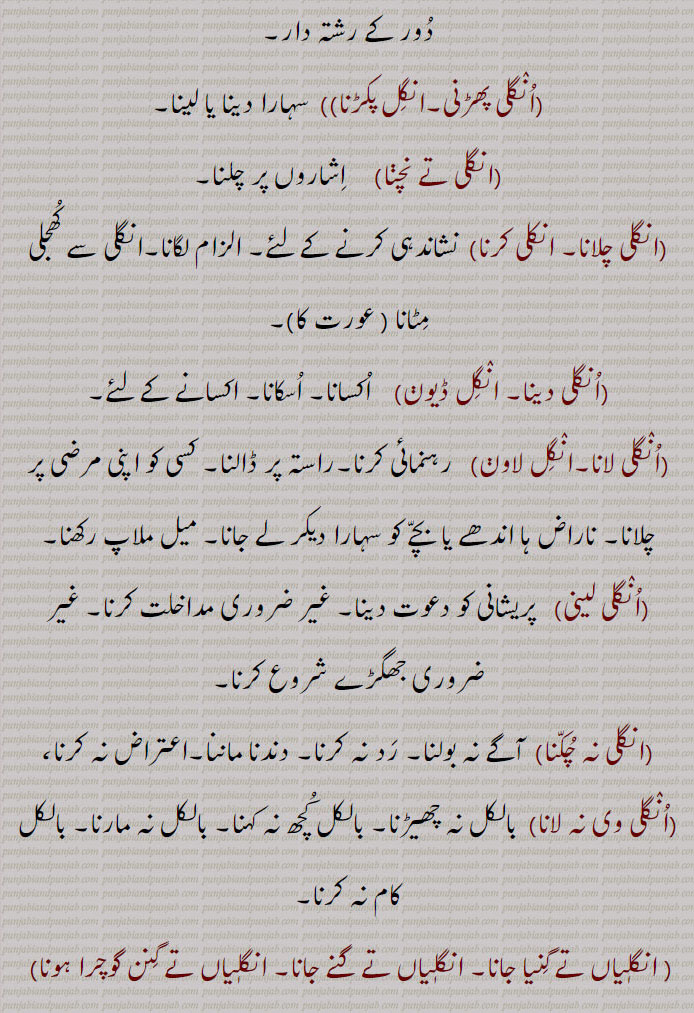 دُور کے رشتہ دار۔
(اُنْگلی پھڑنی۔انگِل پکڑنا)) سہارا دینا یا لینا۔
(انگلی تے نچݨا) اِشاروں پر چلنا۔
(انگلی چلانا۔ انکلی کرنا) نشاندہی کرنے کے لئے۔ الزام لگانا۔انگلی سے کُھجلی
مِٹانا (عورت کا)۔
(اُنگلی دینا۔ انْگِل ڈیوݨ) اُکسانا۔ اُسکانا۔ اکسانے کے لئے۔
(اُنْگلی لانا۔انْگِل لاوݨ) رہنمائی کرنا۔راستہ پر ڈالنا۔ کسی کو اپنی مرضی پر
چلانا۔ ناراض ہا اندھے یا بچےّ کو سہارا دیکر لے جانا۔ میل ملاپ رکھنا۔
(اُنْگلی لینی) پریشانی کو دعوت دینا۔ غیر ضروری مداخلت کرنا۔ غیر
ضروری جھگڑے شروع کرنا۔
(انگلی نہ چُکّنا) آگے نہ بولنا۔ رَد نہ کرنا۔ دندنا ماننا۔اعتراض نہ کرنا،
(اُنْگلی وی نہ لانا) بالکل نہ چھیڑنا۔ بالکل کُچھ نہ کہنا۔ بالکل نہ مارنا۔ بالکل
کام نہ کرنا۔
( انگلیاں تے گِنیا جانا۔ انگلیاں تے گنے جانا۔ انگلیاں تے گِنن گوچرا ہونا)